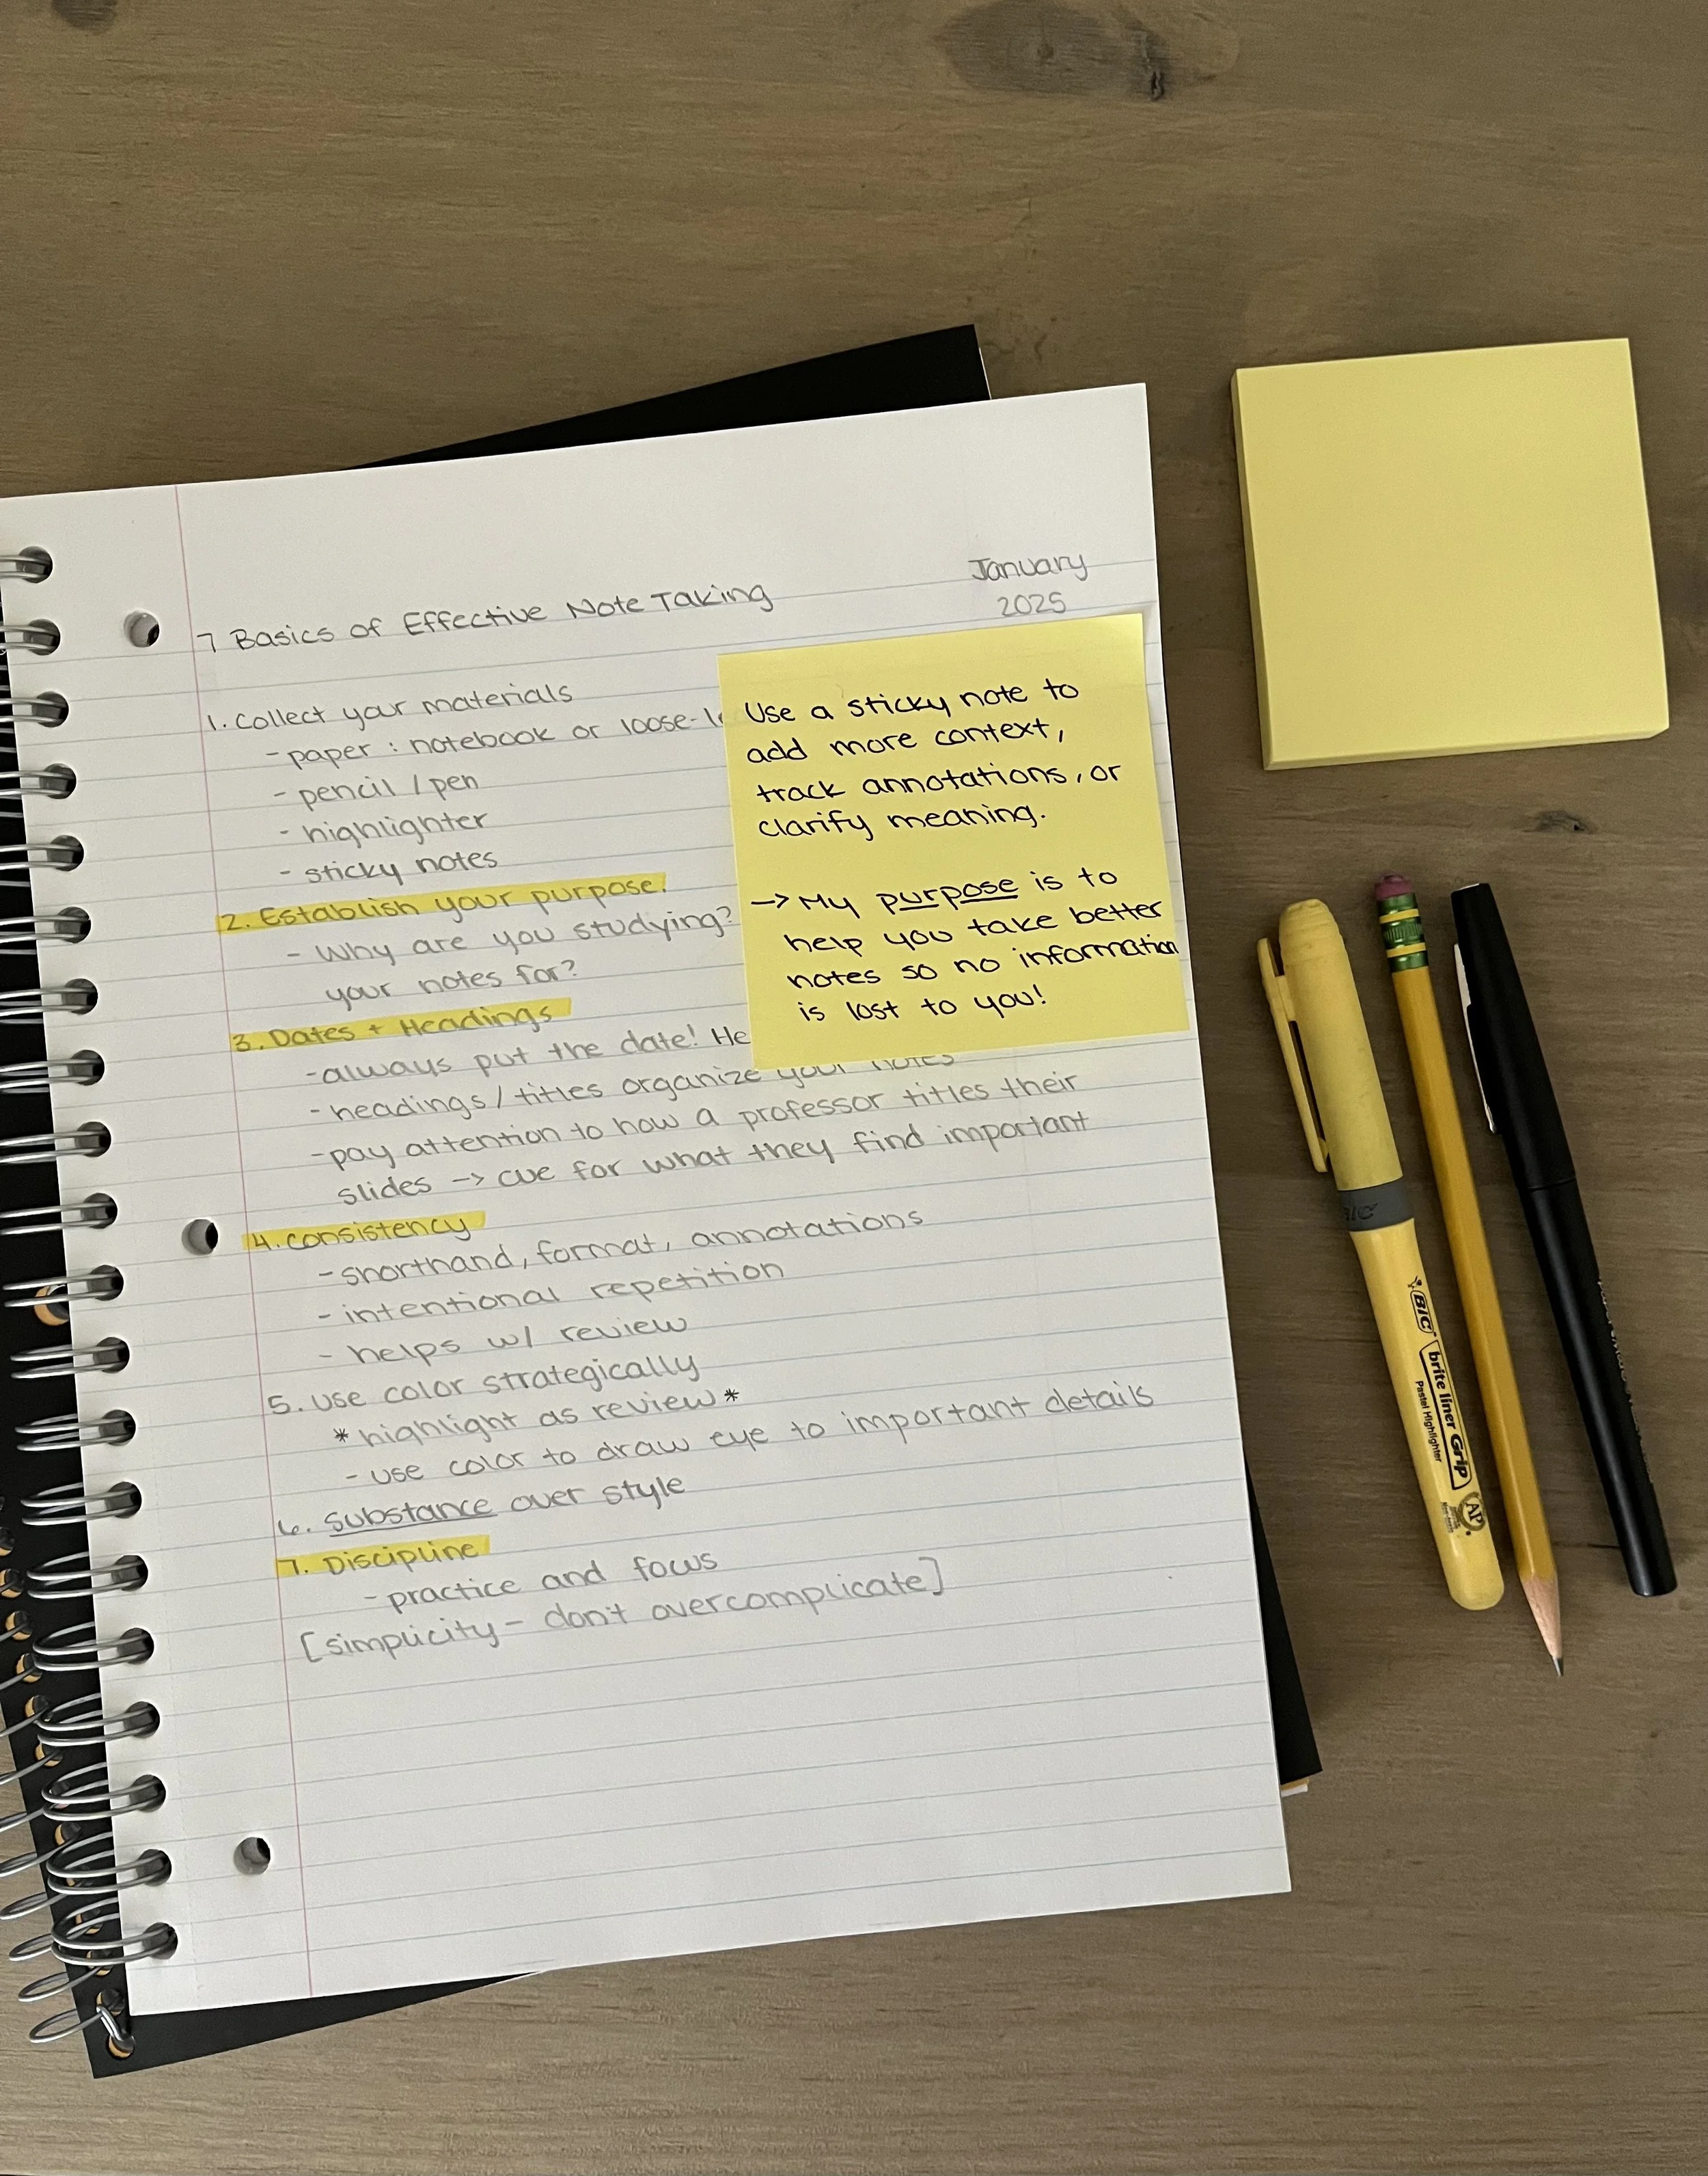 January
2025
7 Basics of Effective Note Taking
1. Collect your materials
- paper : notebook or loose-
- pencil / pen
- highlighter
- sticky notes
2. Establish your purpose.
- Why are you studying?
your notes for?
3. Dates + Headings
- always put the date! He
- headings / titles organize your notes
- pay attention to how a professor titles their
slides -> cue for what they find important
4. Consistency
- shorthand, format, annotations
- intentional repetition
- helps w/ review
5. Use color strategically
* highlight as review *
- use color to draw eye to important details
6. Substance over style
7. Discipline
- practice and focus
[simplicity - don't overcomplicate]
Use a sticky note to
add more context,
track annotations, or
clarify meaning.
-> My purpose is to
help you take better
notes so no information
is lost to you!
BIC
brite liner Grip
Pastel Highlighter
AP